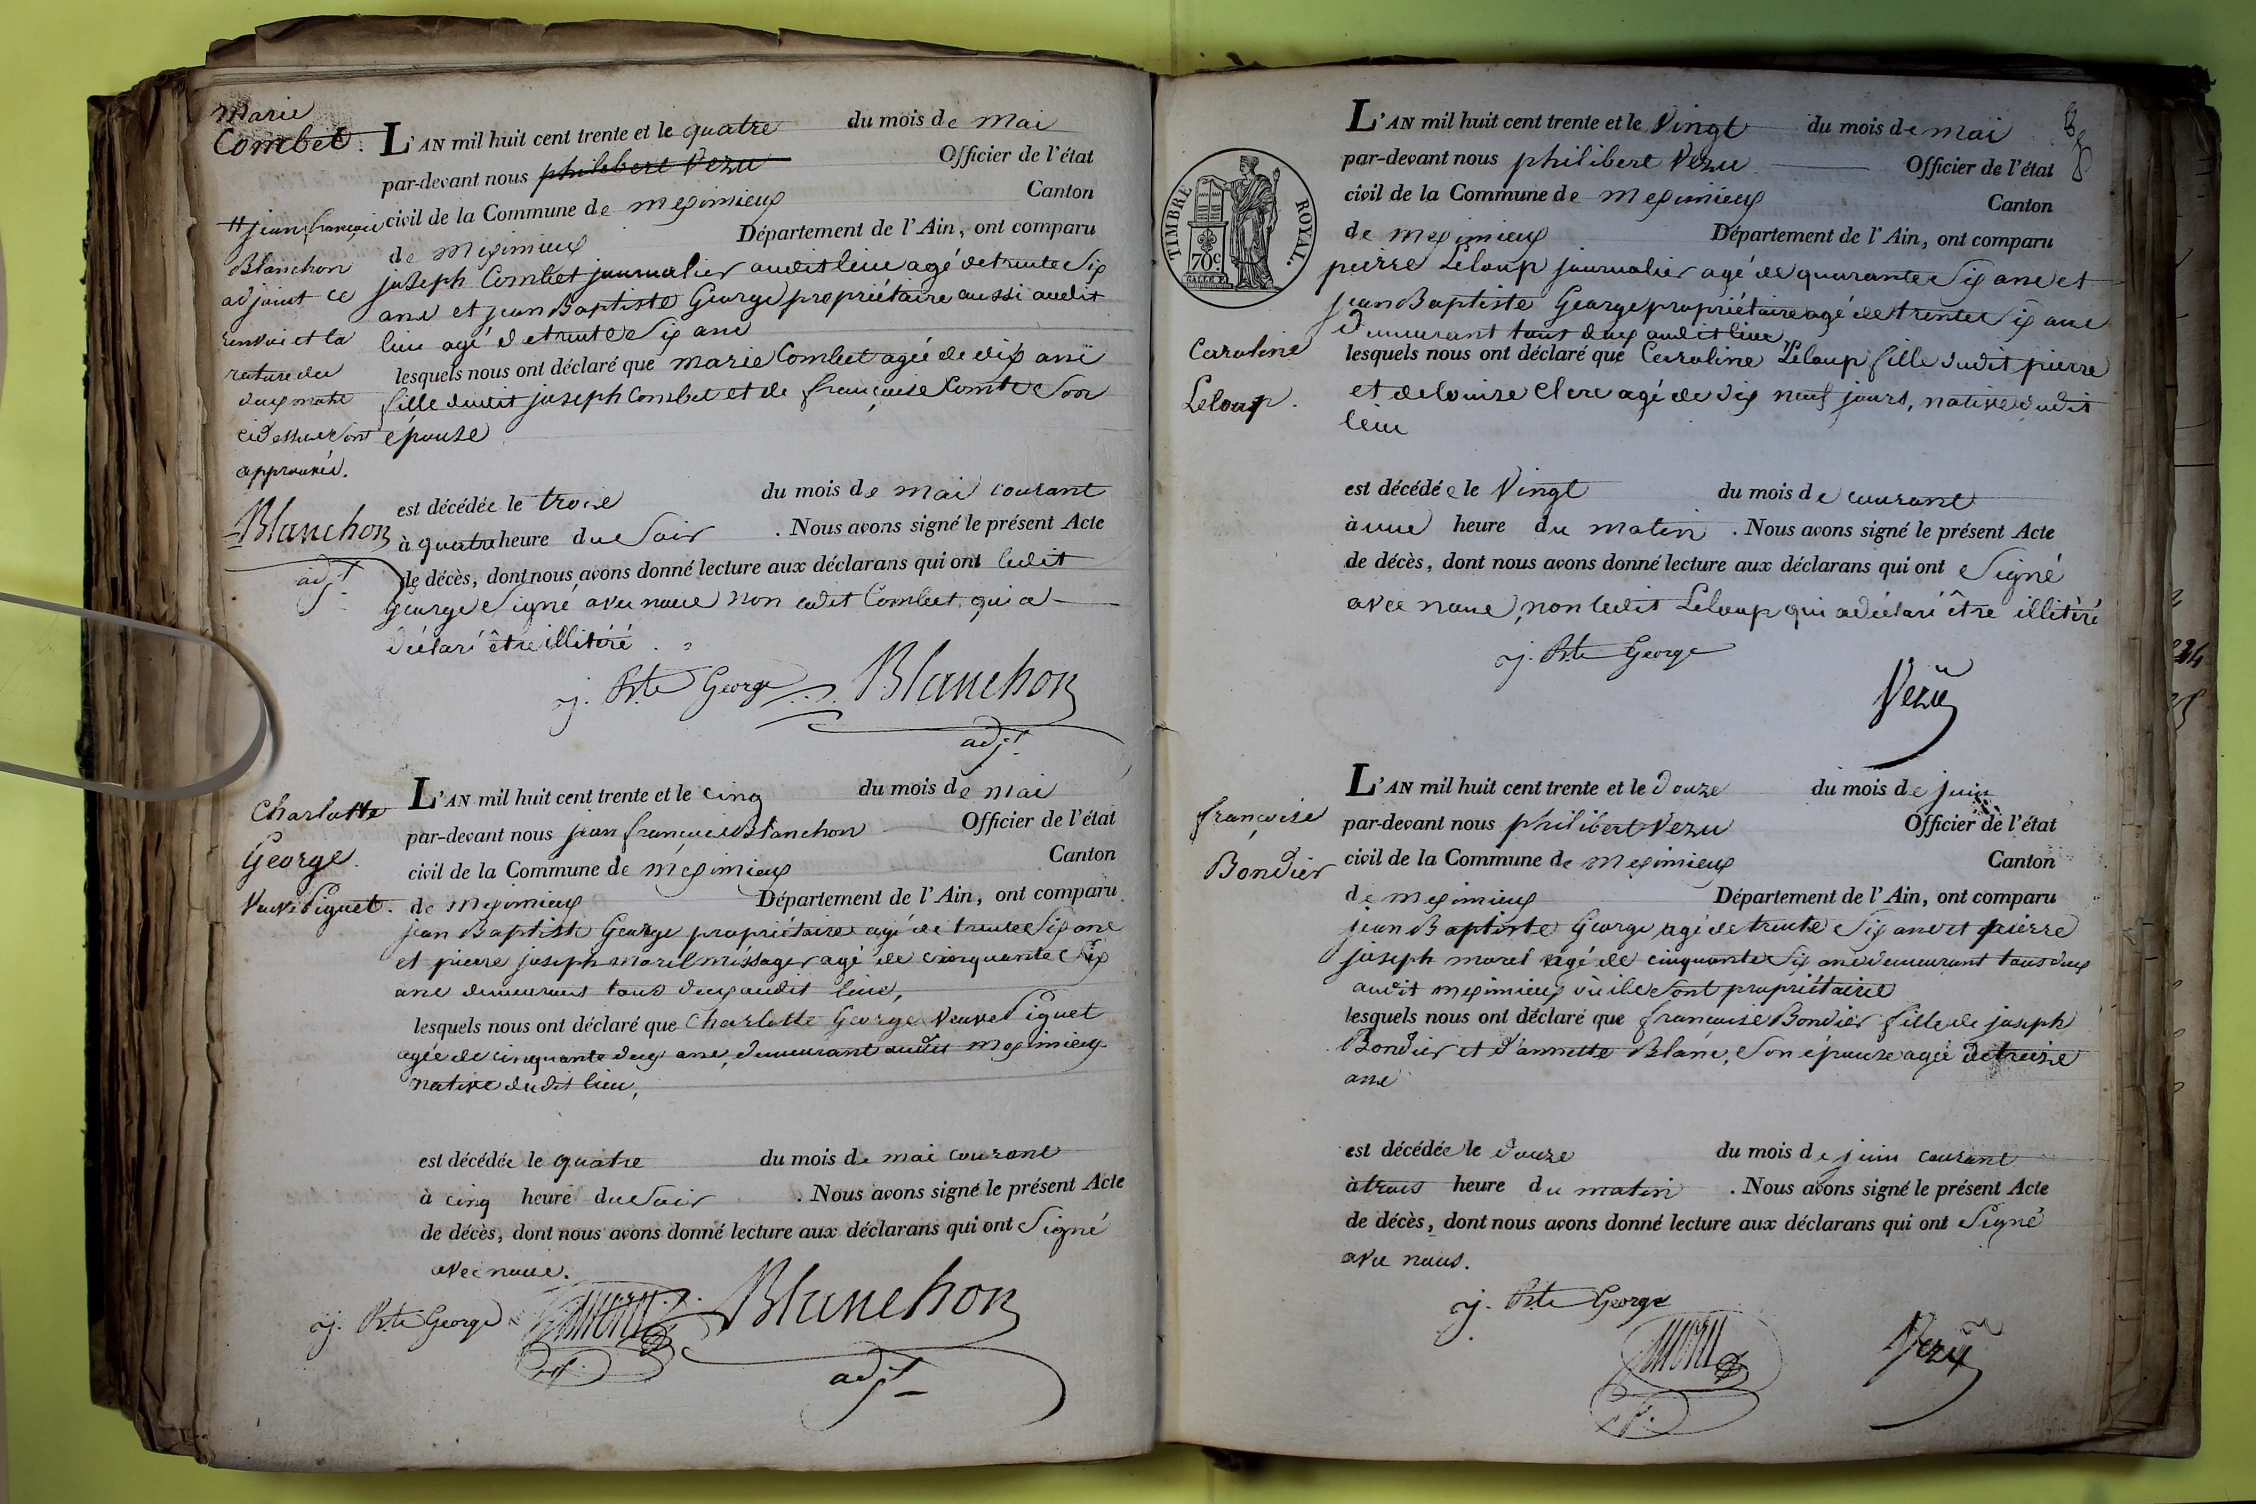 Marie
Combet.
L'AN mil huit cent trente et le quatre du mois de mai
par-devant nous philibert Vezu Officier de l'état
civil de la Commune de meximieux Canton
de Meximieux Département de l'Ain, ont comparu
joseph Combet journalier audit lieu agé de trente six
ans et jean Baptiste George propriétaire aussi audit
lieu agé de trente six ans
lesquels nous ont déclaré que marie Combet agée de dix ans
fille dudit joseph Combet et de françoise Comte Son
épouse
// jean françois
Blanchon
adjoint ce
renvoi et la
rature de
deux mots
ci dessus sont
approuvés.
Blanchon
adjt
est décédée le trois du mois de mai courant
à quatre heure du Soir . Nous avons signé le présent Acte
de décès, dont nous avons donné lecture aux déclarans qui ont ledit
George Signé avec nous non ledit Combet qui a
déclaré être illitéré.
j. Bte George Blanchon
adjt
Charlotte
George.
Veuve Piguet.
L'AN mil huit cent trente et le cinq du mois de mai
par-devant nous jean françois Blanchon Officier de l'état
civil de la Commune de meximieux Canton
de Meximieux Département de l'Ain, ont comparu
jean Baptiste George propriétaire agé de trente Six ans
et pierre joseph Morel méssager agé de cinquante Six
ans demeurans tous deux audit lieu,
lesquels nous ont déclaré que Charlotte George Veuve Piguet
agée de cinquante deux ans, demeurant audit Meximieux
native dudit lieu,
est décédée le quatre du mois de mai courant
à cinq heure du Soir . Nous avons signé le présent Acte
de décès, dont nous avons donné lecture aux déclarans qui ont Signé
avec nous.
j. Bte George Blanchon
adjt
TIMBRE ROYAL.
70c
L'AN mil huit cent trente et le Vingt du mois de mai
par-devant nous philibert Vezu Officier de l'état
civil de la Commune de Meximieux Canton
de meximieux Département de l'Ain, ont comparu
pierre Leloup journalier agé de quarante Six ans et
jean Baptiste George propriétaire agé de trente Six ans
Demeurant tous deux audit lieu,
Caroline
Leloup.
lesquels nous ont déclaré que Caroline Leloup fille dudit pierre
et de Louise Clerc agé de dix neuf jours, native dudit
lieu
est décédée le Vingt du mois de courant
à une heure du matin . Nous avons signé le présent Acte
de décès, dont nous avons donné lecture aux déclarans qui ont Signé
avec nous, non ledit Leloup qui a déclaré être illitéré
j. Bte George
Vezu
françoise
Bondier
L'AN mil huit cent trente et le douze du mois de juin
par-devant nous philibert Vezu Officier de l'état
civil de la Commune de Meximieux Canton
de meximieux Département de l'Ain, ont comparu
jean Baptiste George agé de trente Six ans et pierre
joseph morel agé de cinquante Six ans demeurant tous deux
audit meximieux où ils sont propriétaires
lesquels nous ont déclaré que françoise Bondier fille de joseph
Bondier et d'annette Blanc, Son épouse agée de treize
ans
est décédée le douze du mois de juin courant
à trois heure du matin . Nous avons signé le présent Acte
de décès, dont nous avons donné lecture aux déclarans qui ont Signé
avec nous.
j. Bte George
Vezu